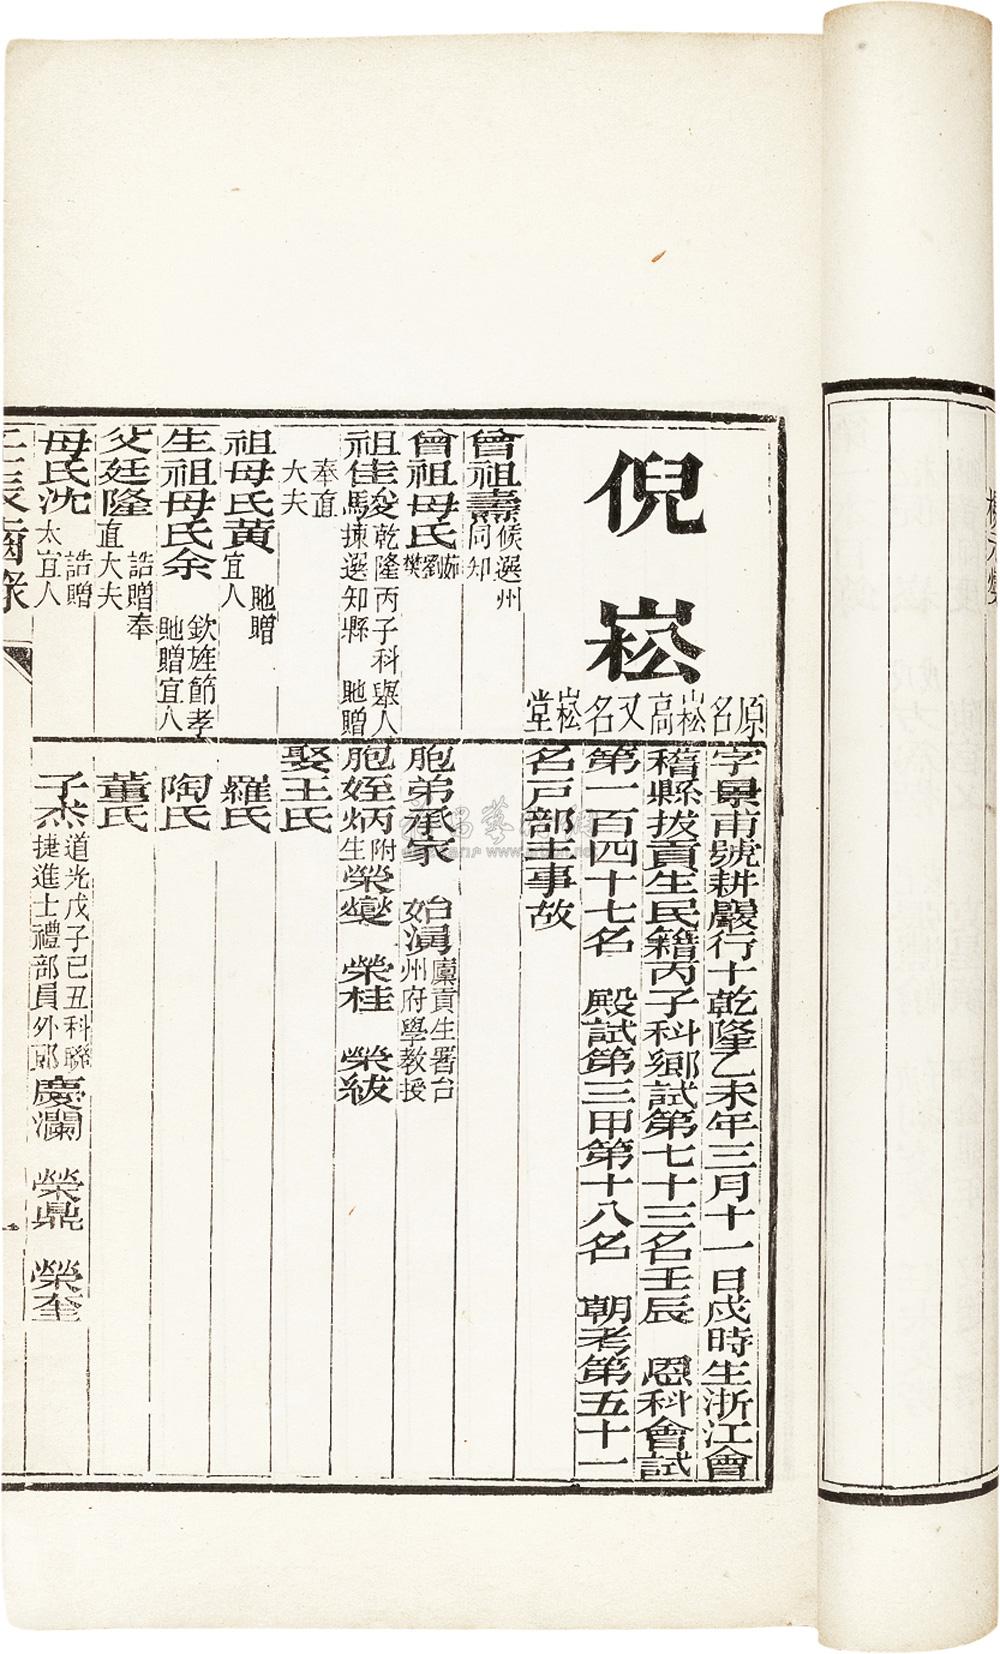 倪崧
原名崧高又名崧堂
字景甫號耕嚴行十乾隆乙未年三月十一日戌時生浙江會
稽縣拔貢生民籍丙子科鄉試第七十三名壬辰 恩科會試
第一百四十七名 殿試第三甲第十八名 朝考第五十一
名戸部主事故
曾祖壽候選州同知
曾祖母氏茹劉樊
祖佳駿乾隆丙子科舉人揀選知縣 貤贈
奉直大夫
祖母氏黃 貤贈宜人
生祖母氏余 欽旌節孝貤贈宜人
父廷隆 誥贈奉直大夫
母氏沈 誥贈太宜人
胞弟承家 始濆廩貢生署台州府學教授
胞姪炳附生榮燮 榮桂 榮紱
娶王氏
羅氏
陶氏
董氏
子杰道光戊子己丑科聯捷進士禮部員外郎慶瀾 榮鼎 榮奎
壬辰齒錄